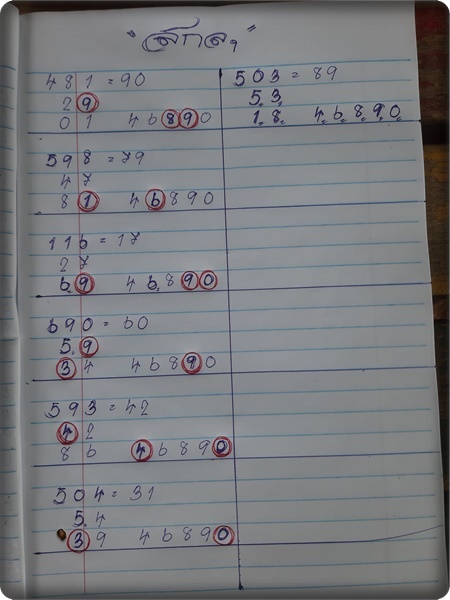 "สีกล"
481 = 90
29
01 46890
598 = 79
47
81 46890
116 = 17
27
6.9 46.890
690 = 60
5.9
34 46890
593 = 42
42
86 46890
504 = 31
5.4
39 46890
503 = 89
5.3.
1.8. 4.6.8.9.0.